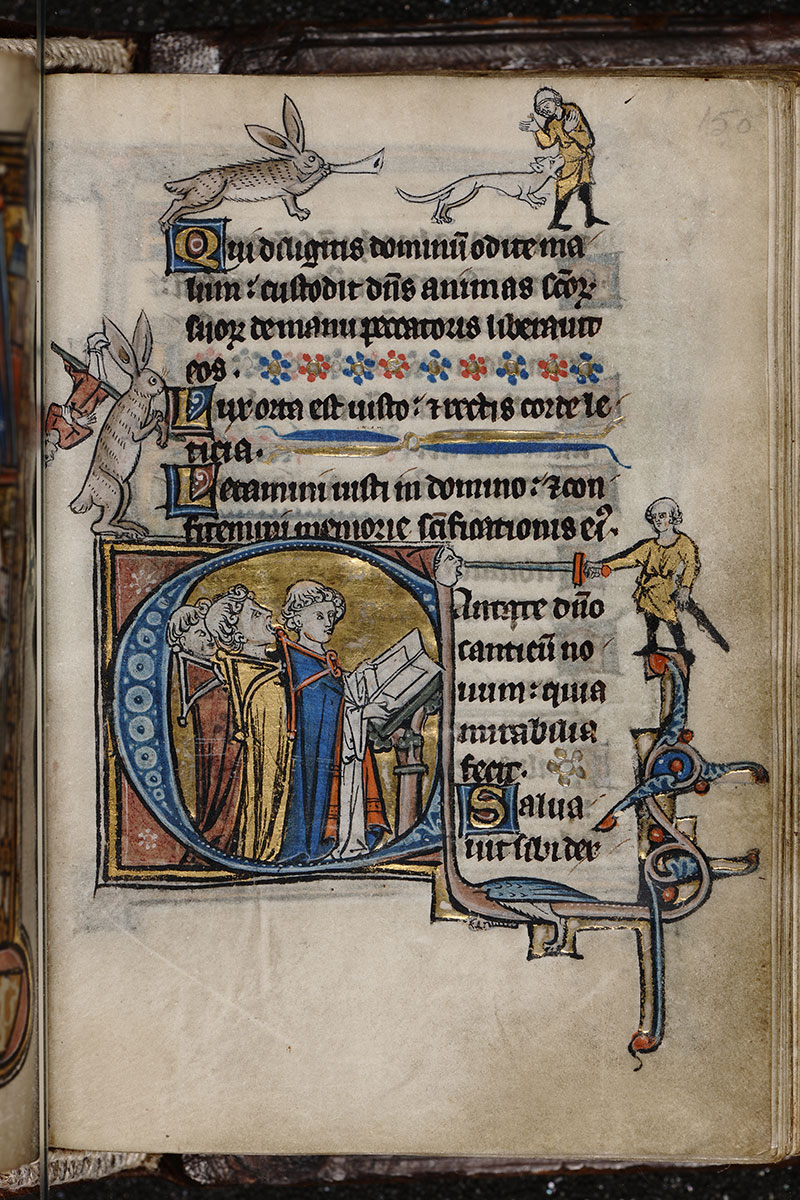 150
Qui diligitis dominū odite ma
lum : custodit dñs animas scōꝝ
suoꝝ de manu peccatoris liberauit
eos .
Lux orta est iusto : ⁊ rectis corde le
ticia .
Letamini iusti in domino : ⁊ con
fitemini memorie scīficationis eiꝰ .
Cantate dño
canticū no
uum : quia
mirabilia
fecit .
Salua
uit sibi der